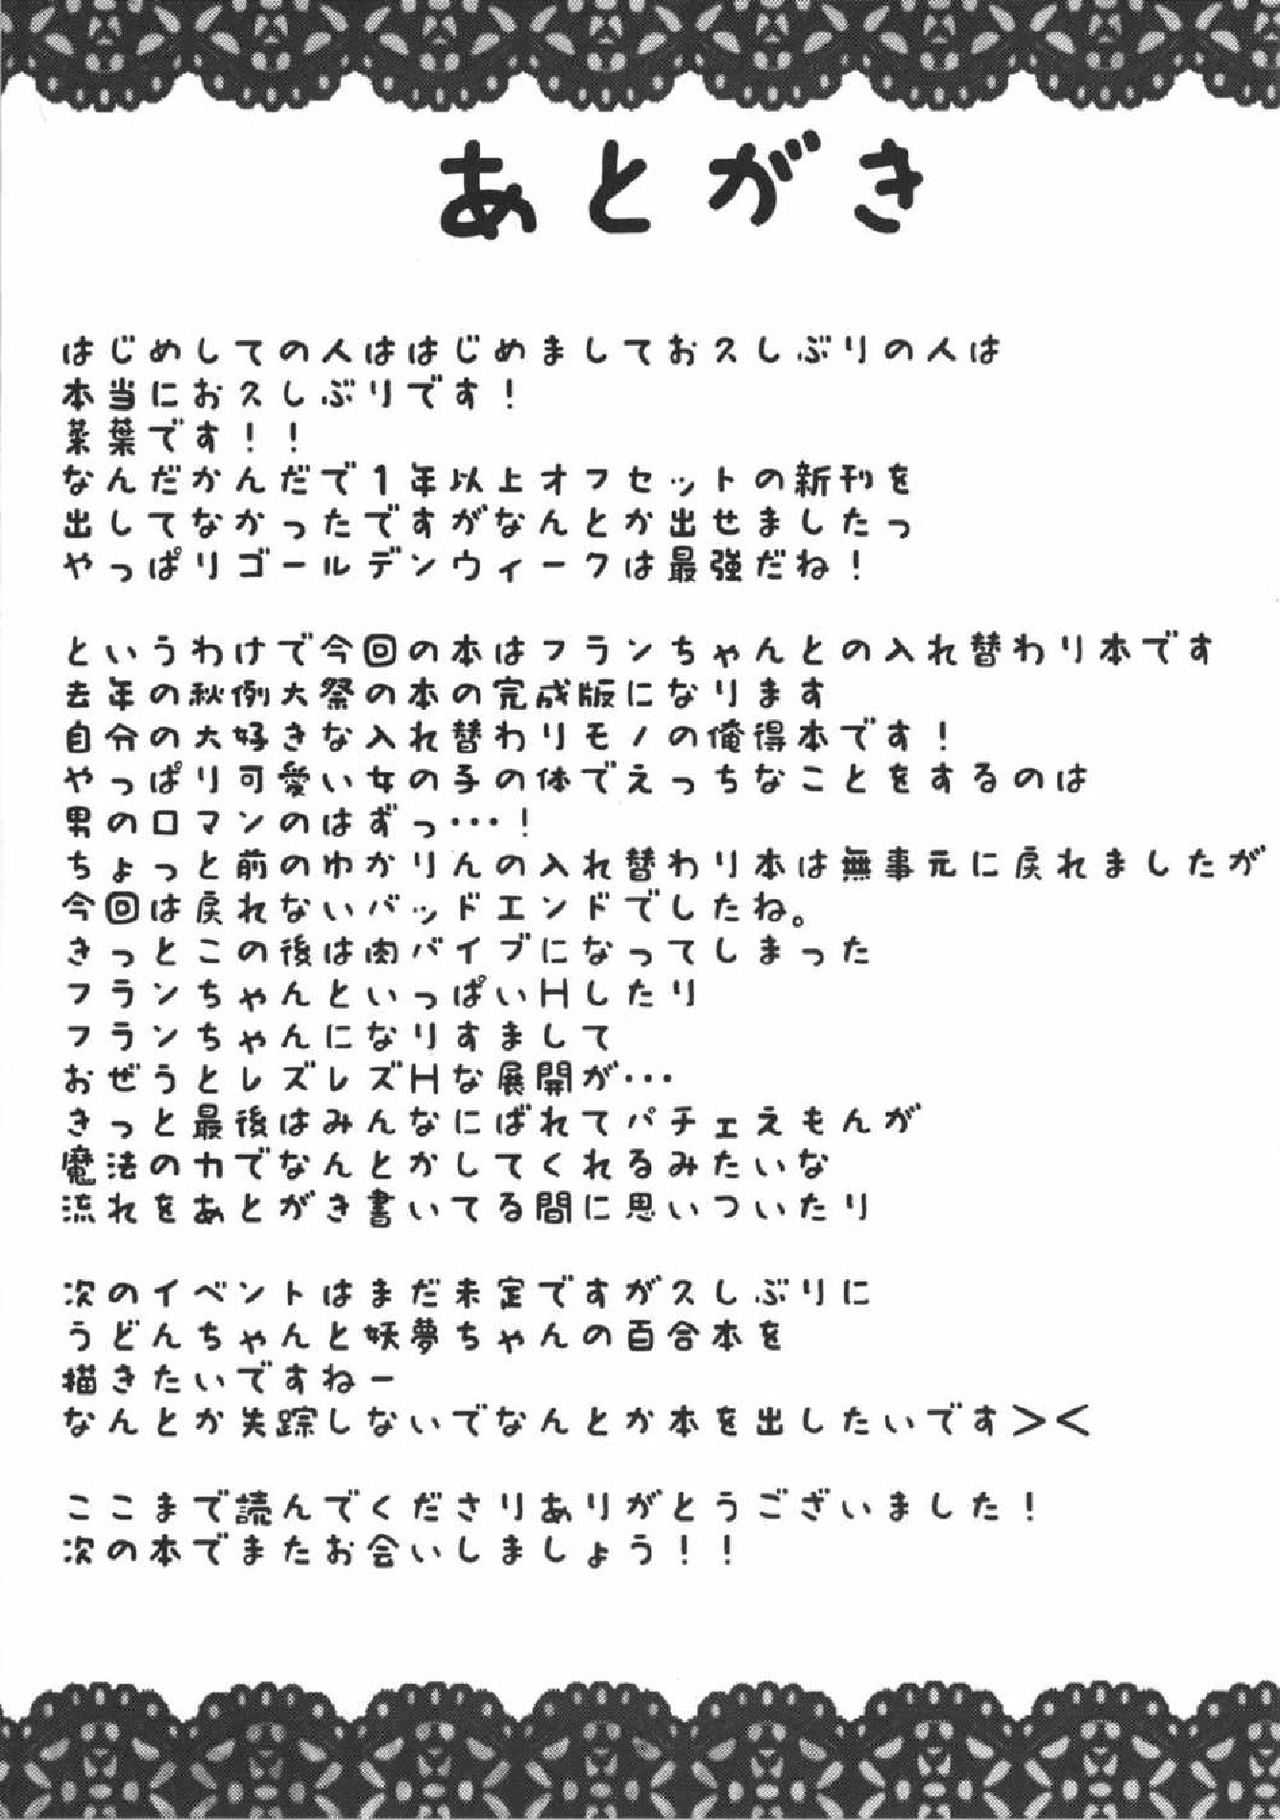 あとがき
はじめしての人ははじめましてお久しぶりの人は
本当にお久しぶりです！
菜葉です！！
なんだかんだで1年以上オフセットの新刊を
出してなかったですがなんとか出せましたっ
やっぱりゴールデンウィークは最強だね！
というわけで今回の本はフランちゃんとの入れ替わり本です
去年の秋例大祭の本の完成版になります
自分の大好きな入れ替わりモノの俺得本です！
やっぱり可愛い女の子の体でえっちなことをするのは
男のロマンのはずっ…！
ちょっと前のゆかりんの入れ替わり本は無事元に戻れましたが
今回は戻れないバッドエンドでしたね。
きっとこの後は肉バイブになってしまった
フランちゃんといっぱいHしたり
フランちゃんになりすまして
おぜうとレズレズHな展開が…
きっと最後はみんなにばれてパチェえもんが
魔法の力でなんとかしてくれるみたいな
流れをあとがき書いてる間に思いついたり
次のイベントはまだ未定ですが久しぶりに
うどんちゃんと妖夢ちゃんの百合本を
描きたいですねー
なんとか失踪しないでなんとか本を出したいです＞＜
ここまで読んでくださりありがとうございました！
次の本でまたお会いしましょう！！